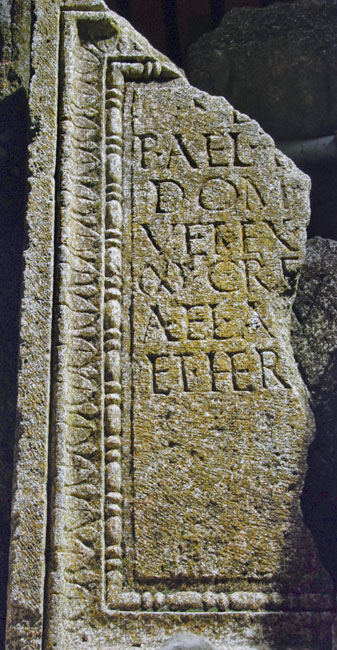 P·AEL·
DOM
VET EX
CRE
AEL A
ET HER